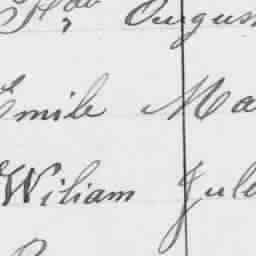 Augus
Emile Ma
Wiliam Jule